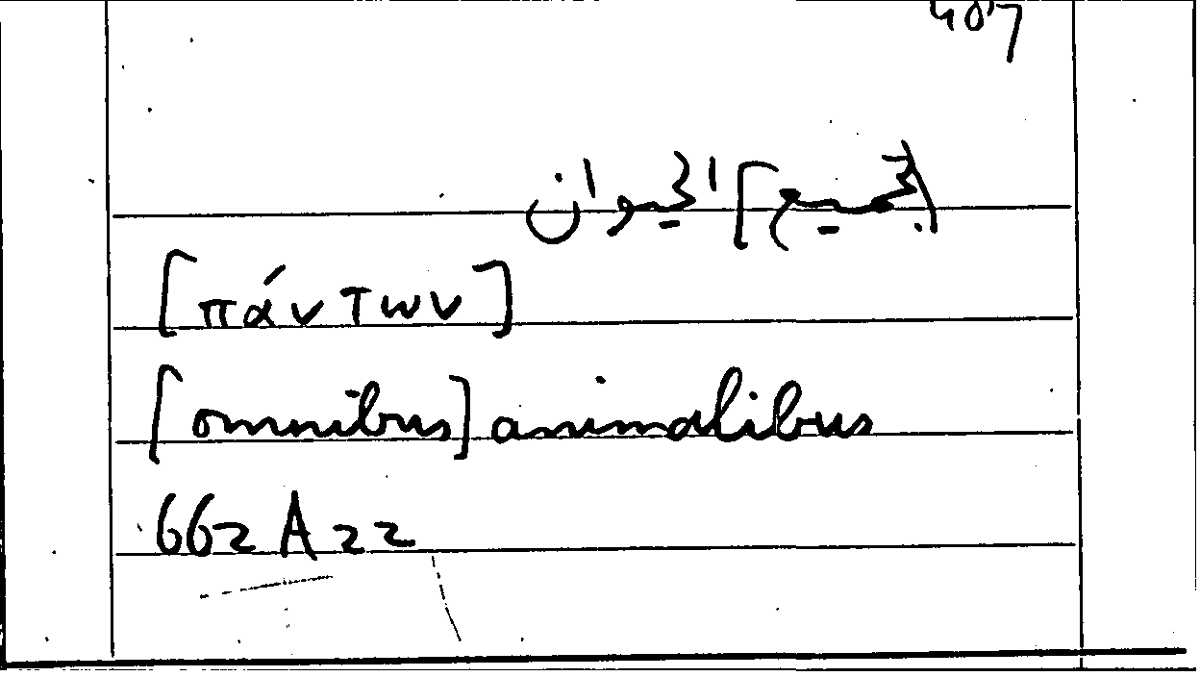 [جميع] الحيوان
[πάντων]
[omnibus] animalibus
662 A 22